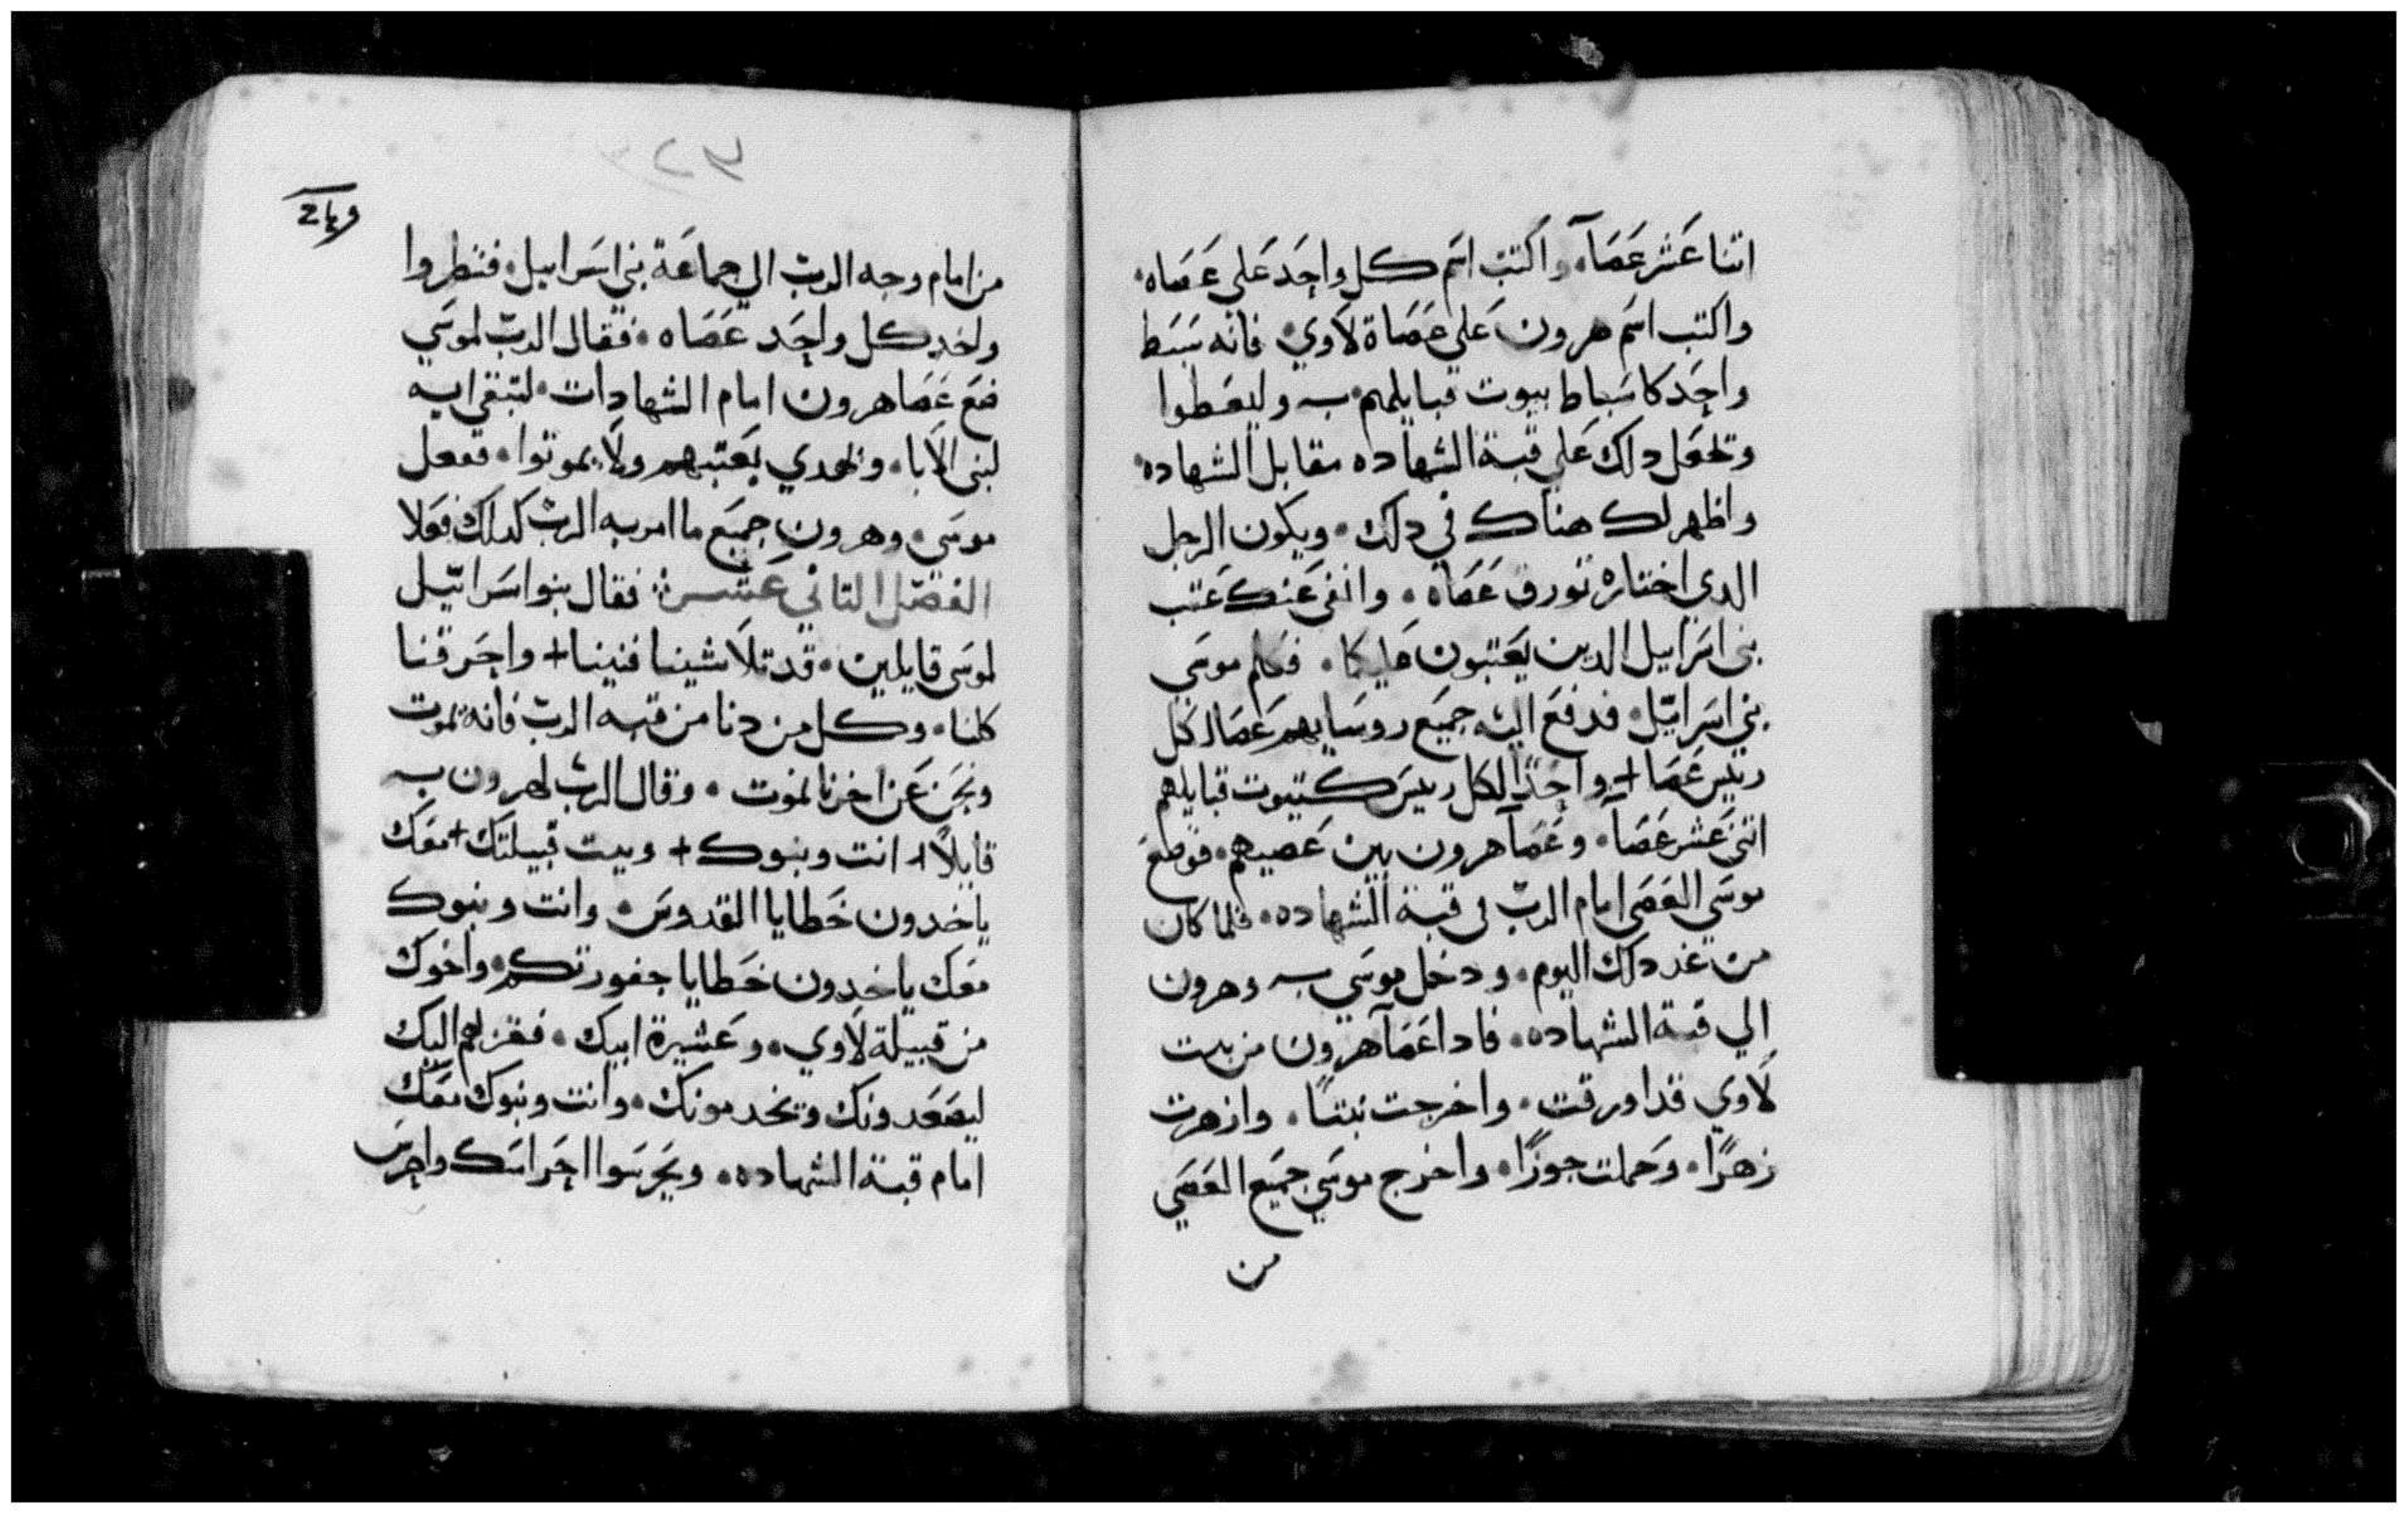 اتنا عَشر عَصَآ، واكتب اسَم كل واحِد عَلي عَصَاه،
واكتب اسَم هرون عَلي عَصَاة لاَوي، فانه سَبَط
واحِد كاسَباط بيوت قبايلهم به وليعَطوا
وتجعَل دلك عَلي قبة الشهاده مقابل الشهاده،
واظهر لك هناك في دلك، ويكون الرجل
الدي اختاره تورق عَصَاه، وانفي عَنك عَتب
بني اسَراييل الدين يعَتبون عليكما، فكلم موسَي
بني اسَراييل، فدفعَ اليه جميَع روسَايهم عَصَا لكل
رييس عَصَا + واحِدًا لكل رييسَ كبيوت قبايلهم
اتني عَشر عَصَآ، وعَصَآ هرون بين عَصيهم، فوضعَ
موسَي العَصَي امام الرب في قبة الشهاده، فلما كان
من غد دلك اليوم، ودخل موسَي به وهرون
الي قبة الشهاده، فادا عَصَآ هرون من بيت
لاَوي قد اورقت، واخرجت نبتًا، وازهرت
زهرًا، وحَملت جوزًا، واخرج موسَي جميَع العَصَي
من
٣٢٣
من امام وجه الرب الي جماعَة بني اسَراييل، فنظروا
واخد كل واحِد عَصَاه، فقال الرب لموسَي
ضعَ عَصَا هرون امام الشهادات، لتبقي ايه
لبني الابا، وتهدي بعَتبهم ولاَ يموتوا، ففعل
موسَي، وهرون جميَع ما امر به الرب كدلك فعَلا
الفصَل التاني عَشر فقال بنوا اسَراييل
لموسَي قايلين، قد تلاَشينا فنينا + واحَرقنا
كلنا، وكل من دنا من قبه الرب فانه يموت
ونحَن عَن اخرنا نموت، وقال الرب لهرون به
قايلاً + انت وبنوك + وبيت قبيلتك + معَك
ياخدون خَطايا القدوسَ، وانت وبنوك
معَك ياخدون خَطايا جفورتكم، واخوك
من قبيلة لاَوي، وعَشيرة ابيك، فقربهم اليك
ليعَضدونك وتخدمونك، وانت وبنوك معَك
امام قبة الشهاده، ويحَرسَوا احَراسَك واحرسَ